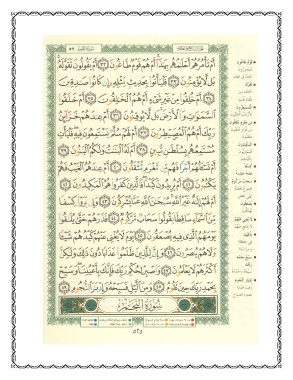 أَمْ تَأْمُرُهُمْ أَحْلَٰمُهُم بِهَٰذَآ أَمْ هُمْ قَوْمٌ طَاغُونَ ٣٢ أَمْ يَقُولُونَ تَقَوَّلَهُۥ
بَل لَّا يُؤْمِنُونَ ٣٣ فَلْيَأْتُوا۟ بِحَدِيثٍ مِّثْلِهِۦٓ إِن كَانُوا۟ صَٰدِقِينَ
٣٤ أَمْ خُلِقُوا۟ مِنْ غَيْرِ شَىْءٍ أَمْ هُمُ ٱلْخَٰلِقُونَ ٣٥ أَمْ خَلَقُوا۟
ٱلسَّمَٰوَٰتِ وَٱلْأَرْضَ بَل لَّا يُوقِنُونَ ٣٦ أَمْ عِندَهُمْ خَزَآئِنُ
رَبِّكَ أَمْ هُمُ ٱلْمُصَۣيْطِرُونَ ٣٧ أَمْ لَهُمْ سُلَّمٌ يَسْتَمِعُونَ فِيهِ فَلْيَأْتِ
مُسْتَمِعُهُم بِسُلْطَٰنٍ مُّبِينٍ ٣٨ أَمْ لَهُ ٱلْبَنَٰتُ وَلَكُمُ ٱلْبَنُونَ ٣٩
أَمْ تَسْـَٔلُهُمْ أَجْرًا فَهُم مِّن مَّغْرَمٍ مُّثْقَلُونَ ٤٠ أَمْ عِندَهُمُ ٱلْغَيْبُ فَهُمْ
يَكْتُبُونَ ٤١ أَمْ يُرِيدُونَ كَيْدًا فَٱلَّذِينَ كَفَرُوا۟ هُمُ ٱلْمَكِيدُونَ ٤٢
أَمْ لَهُمْ إِلَٰهٌ غَيْرُ ٱللَّهِ سُبْحَٰنَ ٱللَّهِ عَمَّا يُشْرِكُونَ ٤٣ وَإِن يَرَوْا۟ كِسْفًا
مِّنَ ٱلسَّمَآءِ سَاقِطًا يَقُولُوا۟ سَحَابٌ مَّرْكُومٌ ٤٤ فَذَرْهُمْ حَتَّىٰ يُلَٰقُوا۟
يَوْمَهُمُ ٱلَّذِى فِيهِ يُصْعَقُونَ ٤٥ يَوْمَ لَا يُغْنِى عَنْهُمْ كَيْدُهُمْ شَيْـًٔا
وَلَا هُمْ يُنصَرُونَ ٤٦ وَإِنَّ لِلَّذِينَ ظَلَمُوا۟ عَذَابًا دُونَ ذَٰلِكَ وَلَٰكِنَّ
أَكْثَرَهُمْ لَا يَعْلَمُونَ ٤٧ وَٱصْبِرْ لِحُكْمِ رَبِّكَ فَإِنَّكَ بِأَعْيُنِنَا وَسَبِّحْ
بِحَمْدِ رَبِّكَ حِينَ تَقُومُ ٤٨ وَمِنَ ٱلَّيْلِ فَسَبِّحْهُ وَإِدْبَٰرَ ٱلنُّجُومِ ٤٩
سُورَةُ ٱلنَّجْمِ
٥٢٥